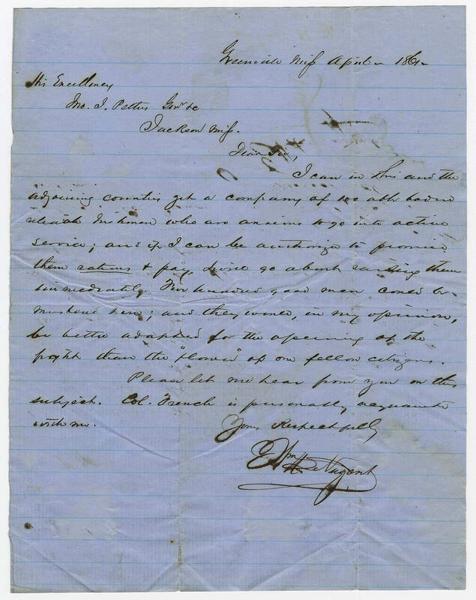 Greenville Miss April - 1861-
His Excellency
Jno. J. Pettus Govr &c
Jackson Miss.
Dear Sir,
I can in this and the
adjoining counties get a company of 100 able bodied
Irishmen who are anxious to go into active
service; and if I can be authorize to promise
them rations & pay, I will go about raising them
immediately. Five hundred good men could be
mustered here; and they would, in my opinion,
be better adapted for the opening of the
fight than the "flower" of our fellow citizens.
Please let me hear from you on this
subject. Col. French is personally acquainted
with me.
Yours Respectfully
Nugent